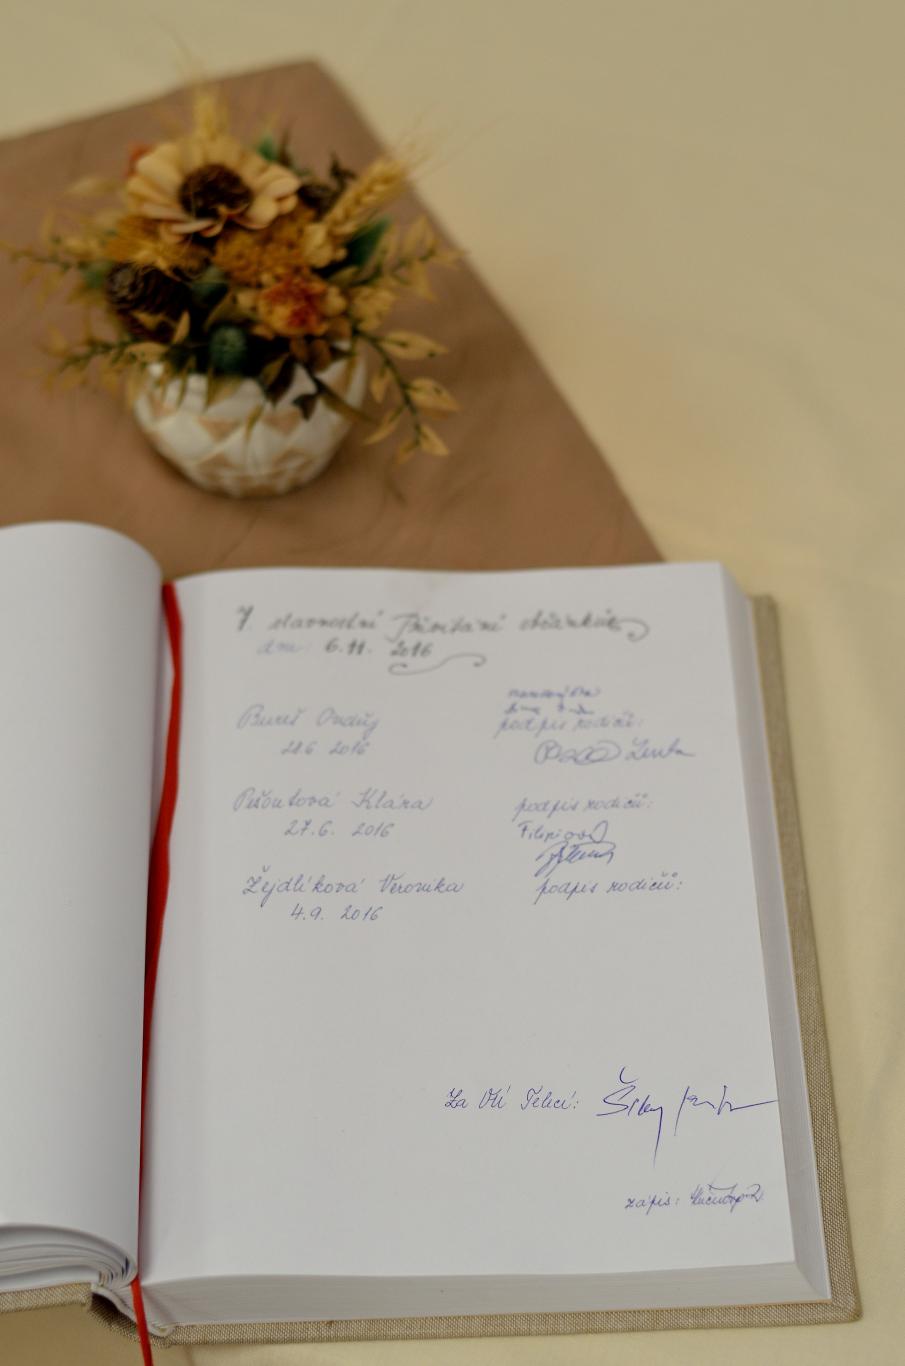 7. slavnostní Přivítání občánků
dne: 6.11. 2016
Bureš Ondřej
28.6 2016
podpis rodičů:
Lenka
Pešoutová Klára
27.6. 2016
podpis rodičů:
Filipiová
Žejdlíková Veronika
4.9. 2016
podpis rodičů:
Za OÚ Telecí:
zápis: